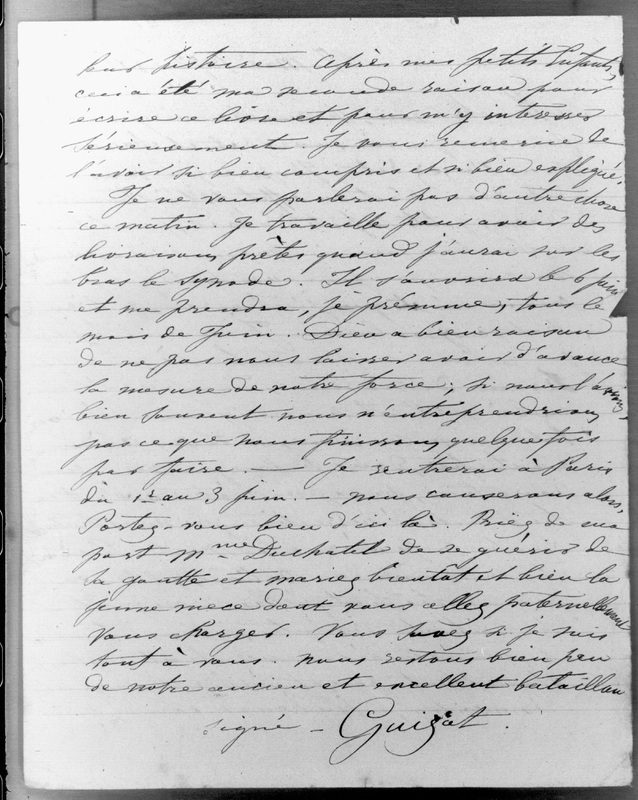 leur histoire. Après mes petits Enfants,
cela a été ma seconde raison pour
écrire ce livre et pour m'y intéresser
sérieusement. Je vous remercie de
l'avoir si bien compris et si bien expliqué.
Je ne vous parlerai pas d'autre chose
ce matin. Je travaille pour avoir des
livraisons prêtes quand j'aurai sur les
bras le Synode. Il s'ouvrira le 6 juin
et me prendra, je présume, tous le
mois de Juin. Dieu a bien raison
de ne pas nous laisser avoir d'avance
la mesure de notre force; si nous l'avions,
bien souvent nous n'entreprendrions
pas ce que nous finissons quelquefois
par faire. — Je rentrerai à Paris
du 1er au 3 juin. — nous causerons alors.
Portez-vous bien d'ici là. Priez de ma
part Mme Duchatel de se guérir de
la goutte et mariez bientôt et bien la
jeune nièce dont vous allez paternellement
vous charger. Vous savez si je suis
tout à vous. nous restons bien peu
de notre ancien et excellent bataillon
signé — Guizot.